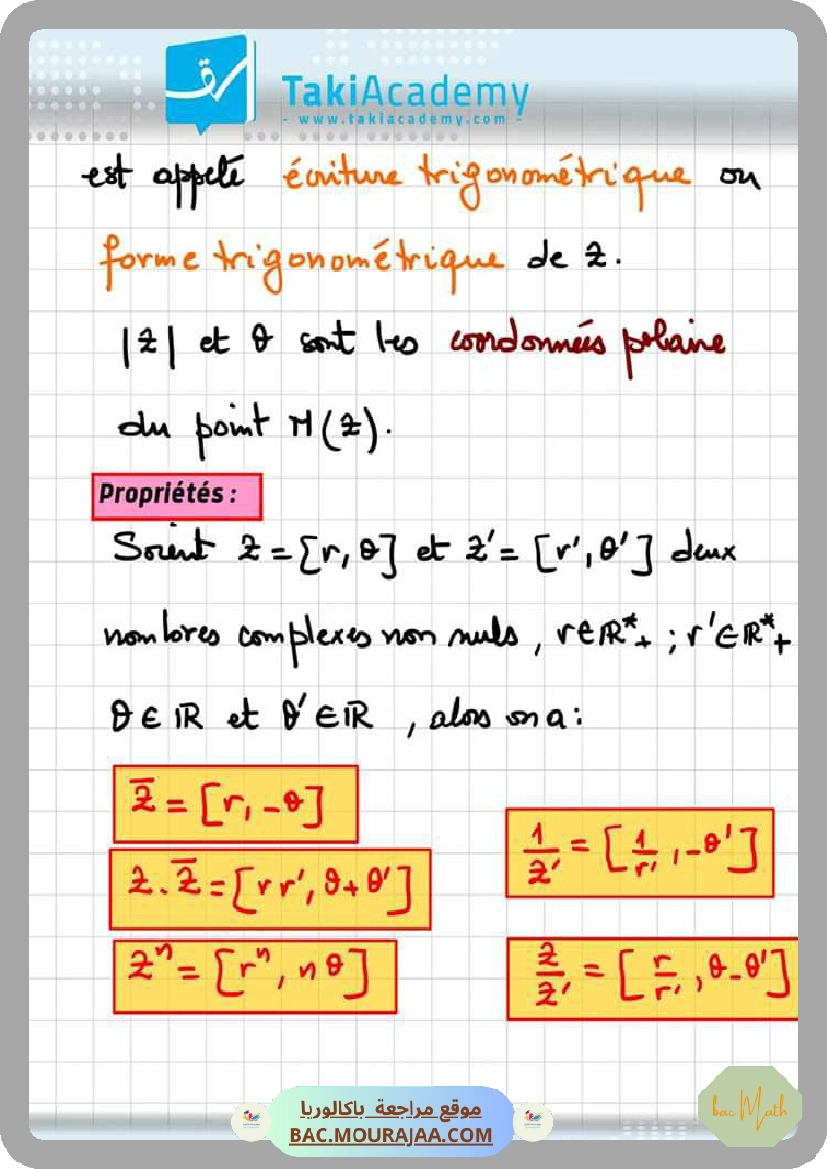 TakiAcademy
- www.takiacademy.com -
est appelé écriture trigonométrique ou
forme trigonométrique de z.
|z| et θ sont les coordonnées polaire
du point M(z).
Propriétés :
Soient z = [r, θ] et z' = [r', θ'] deux
nombres complexes non nuls, r∈ℝ*₊ ; r'∈ℝ*₊
θ ∈ ℝ et θ' ∈ ℝ , alors on a :
z̅ = [r, -θ]
1/z' = [1/r', -θ']
z . z̅ = [r r', θ + θ']
zⁿ = [rⁿ, n θ]
z/z' = [r/r', θ - θ']
موقع مراجعة باكالوريا
BAC.MOURAJAA.COM
bac Math